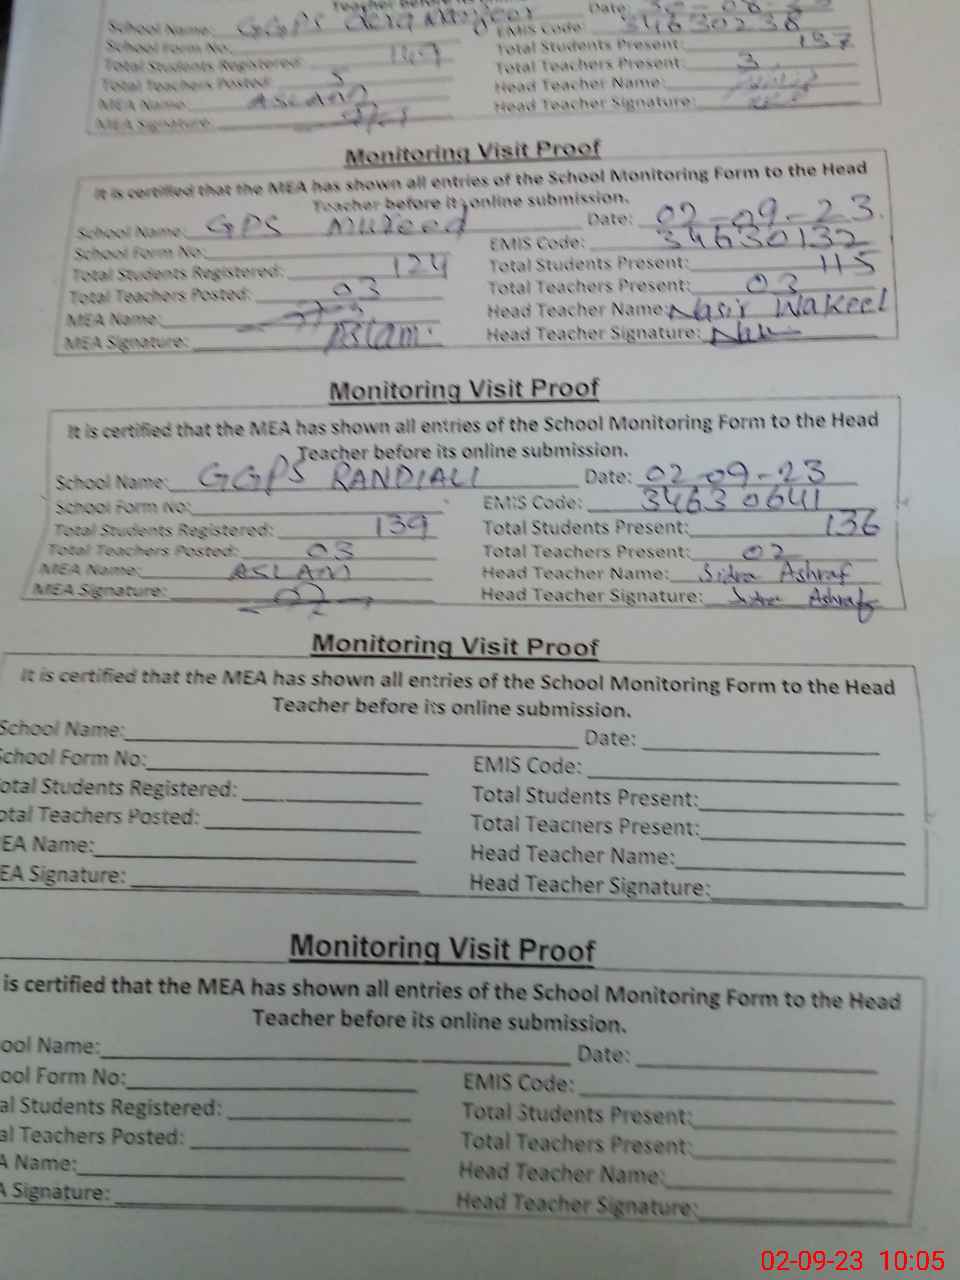 School Name: GGPS Date:
School Form No: EMIS Code: 34630238
Total Students Registered: 149 Total Students Present: 137
Total Teachers Posted: 5 Total Teachers Present: 3
MEA Name: ASLAM Head Teacher Name:
MEA Signature: Head Teacher Signature:
Monitoring Visit Proof
It is certified that the MEA has shown all entries of the School Monitoring Form to the Head
Teacher before its online submission.
School Name: GPS Mureed Date: 02-09-23.
School Form No: EMIS Code: 34630132
Total Students Registered: 124 Total Students Present: 115
Total Teachers Posted: 03 Total Teachers Present: 03
MEA Name: Head Teacher Name: Nasir Wakeel
MEA Signature: Aslam Head Teacher Signature:
Monitoring Visit Proof
It is certified that the MEA has shown all entries of the School Monitoring Form to the Head
Teacher before its online submission.
School Name: GGPS RANDIALI Date: 02-09-23
School Form No: EMIS Code: 34630641
Total Students Registered: 139 Total Students Present: 136
Total Teachers Posted: 03 Total Teachers Present: 02
MEA Name: ASLAM Head Teacher Name: Sidra Ashraf
MEA Signature: Head Teacher Signature: Sidra Ashraf
Monitoring Visit Proof
It is certified that the MEA has shown all entries of the School Monitoring Form to the Head
Teacher before its online submission.
School Name: Date:
School Form No: EMIS Code:
otal Students Registered: Total Students Present:
otal Teachers Posted: Total Teachers Present:
EA Name: Head Teacher Name:
EA Signature: Head Teacher Signature:
Monitoring Visit Proof
is certified that the MEA has shown all entries of the School Monitoring Form to the Head
Teacher before its online submission.
ool Name: Date:
ool Form No: EMIS Code:
al Students Registered: Total Students Present:
al Teachers Posted: Total Teachers Present:
A Name: Head Teacher Name:
A Signature: Head Teacher Signature:
02-09-23 10:05